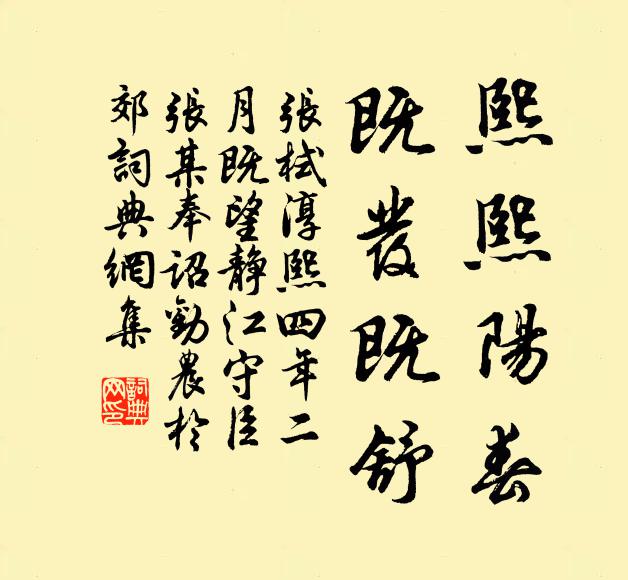 熙熙陽春
既發既舒
張栻淳熙四年二
月既望靜江守臣
張某奉詔勸農於
郊詞典網集
詞典網印